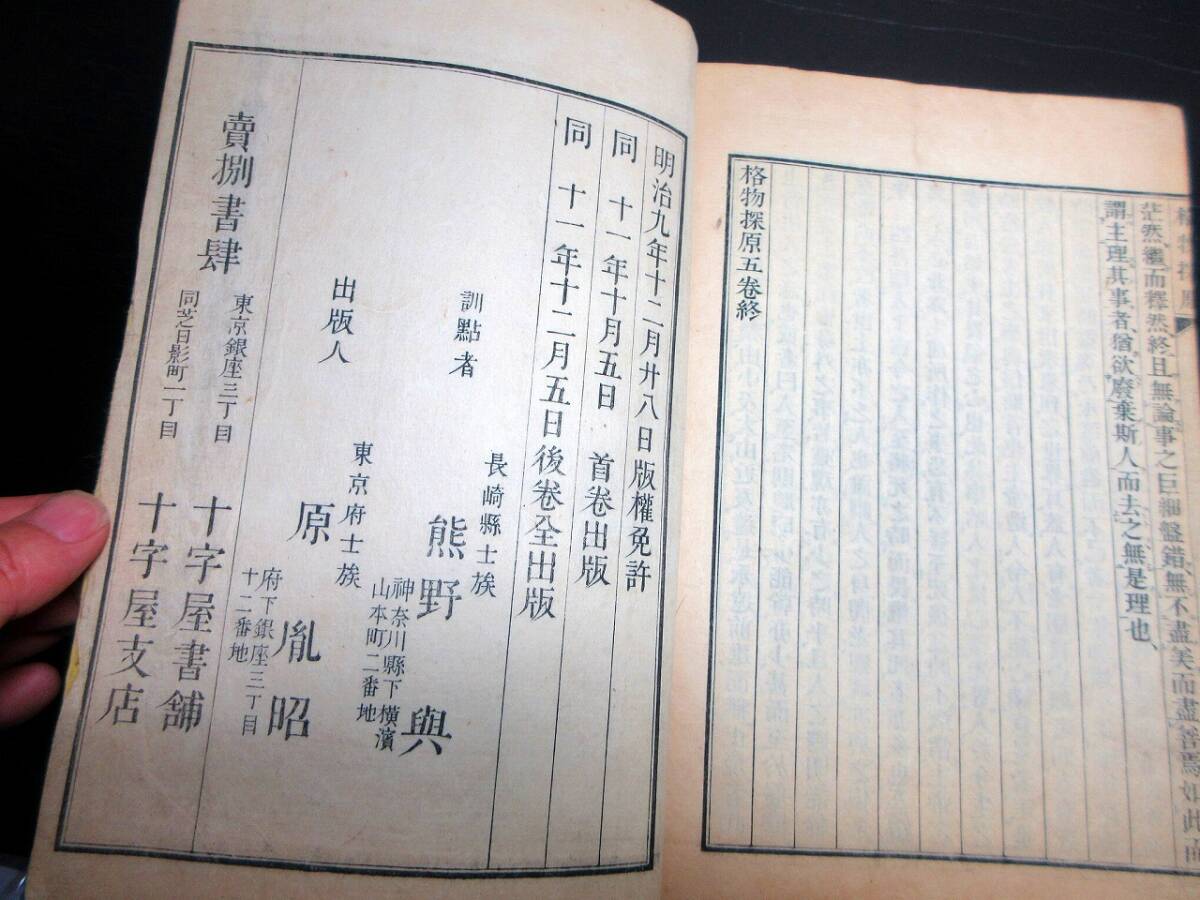 茫然繼而釋然終且無論事之巨細盤錯、無不盡美而盡善焉如此而
謂主理其事者、猶欲廢棄斯人而去之無是理也、
格物探原五卷終
明治九年十二月廿八日版權免許
同 十一年十月五日 首卷出版
同 十一年十二月五日後卷全出版
長崎縣士族
訓點者 熊野與
神奈川縣下橫濱
山本町二番地
東京府士族
出版人 原胤昭
府下銀座三丁目
十二番地
賣捌書肆
東京銀座三丁目 十字屋書舖
同芝日影町一丁目 十字屋支店